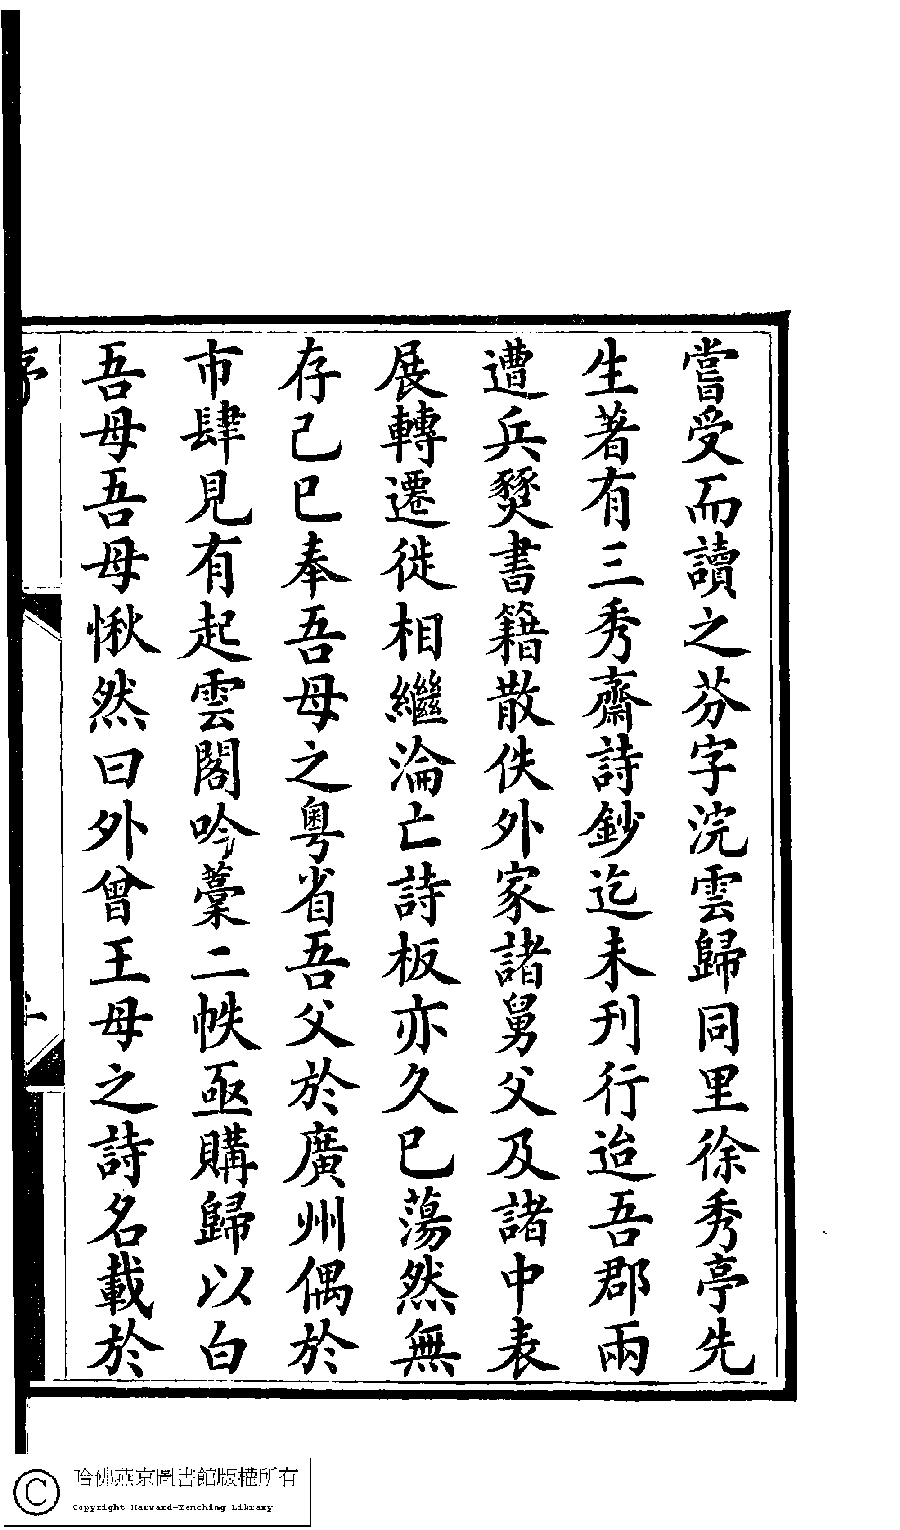 嘗受而讀之芬字浣雲歸同里徐秀亭先
生著有三秀齋詩鈔迄未刊行迨吾郡兩
遭兵燹書籍散佚外家諸舅父及諸中表
展轉遷徙相繼淪亡詩板亦久已蕩然無
存己巳奉吾母之粵省吾父於廣州偶於
市肆見有起雲閣吟藳二帙亟購歸以白
吾母吾母愀然曰外曾王母之詩名載於
哈佛燕京圖書館版權所有
Copyright Harvard-Yenching Library